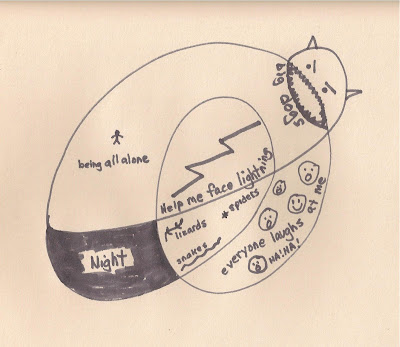 big dogs
being all alone
Help me face lightning
lizards
*spiders
snakes
Night
everyone laughs at me
HA! HA!